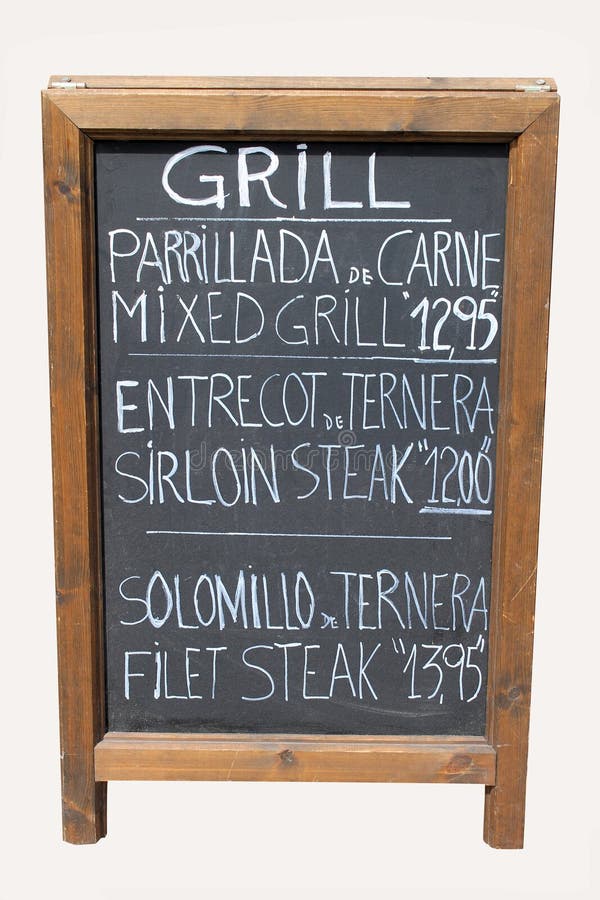 GRILL
PARRILLADA DE CARNE
MIXED GRILL "12,95"
ENTRECOT DE TERNERA
SIRLOIN STEAK "12,00"
SOLOMILLO DE TERNERA
FILET STEAK "13,95"